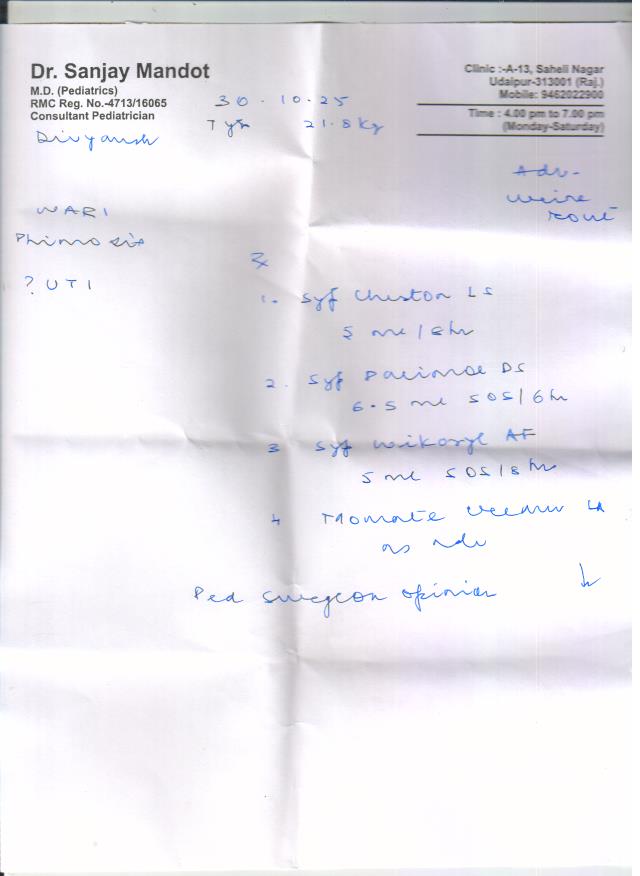 Dr. Sanjay Mandot
M.D. (Pediatrics)
RMC Reg. No.-4713/16065
Consultant Pediatrician
Clinic :-A-13, Saheli Nagar
Udaipur-313001 (Raj.)
Mobile: 9462022900
Time : 4.00 pm to 7.00 pm
(Monday-Saturday)
30.10.25
21.8 kg
Divyansh
Adv-
Urine
WARI
Phimosis
? UTI
Rx
1. Syp Cheston LS
5 ml / 8 hr
2. Syp DS
6.5 ml SOS / 6 hr
3 Syp AF
5 ml SOS / 8 hr
4 LA
Ped Surgeon opinion